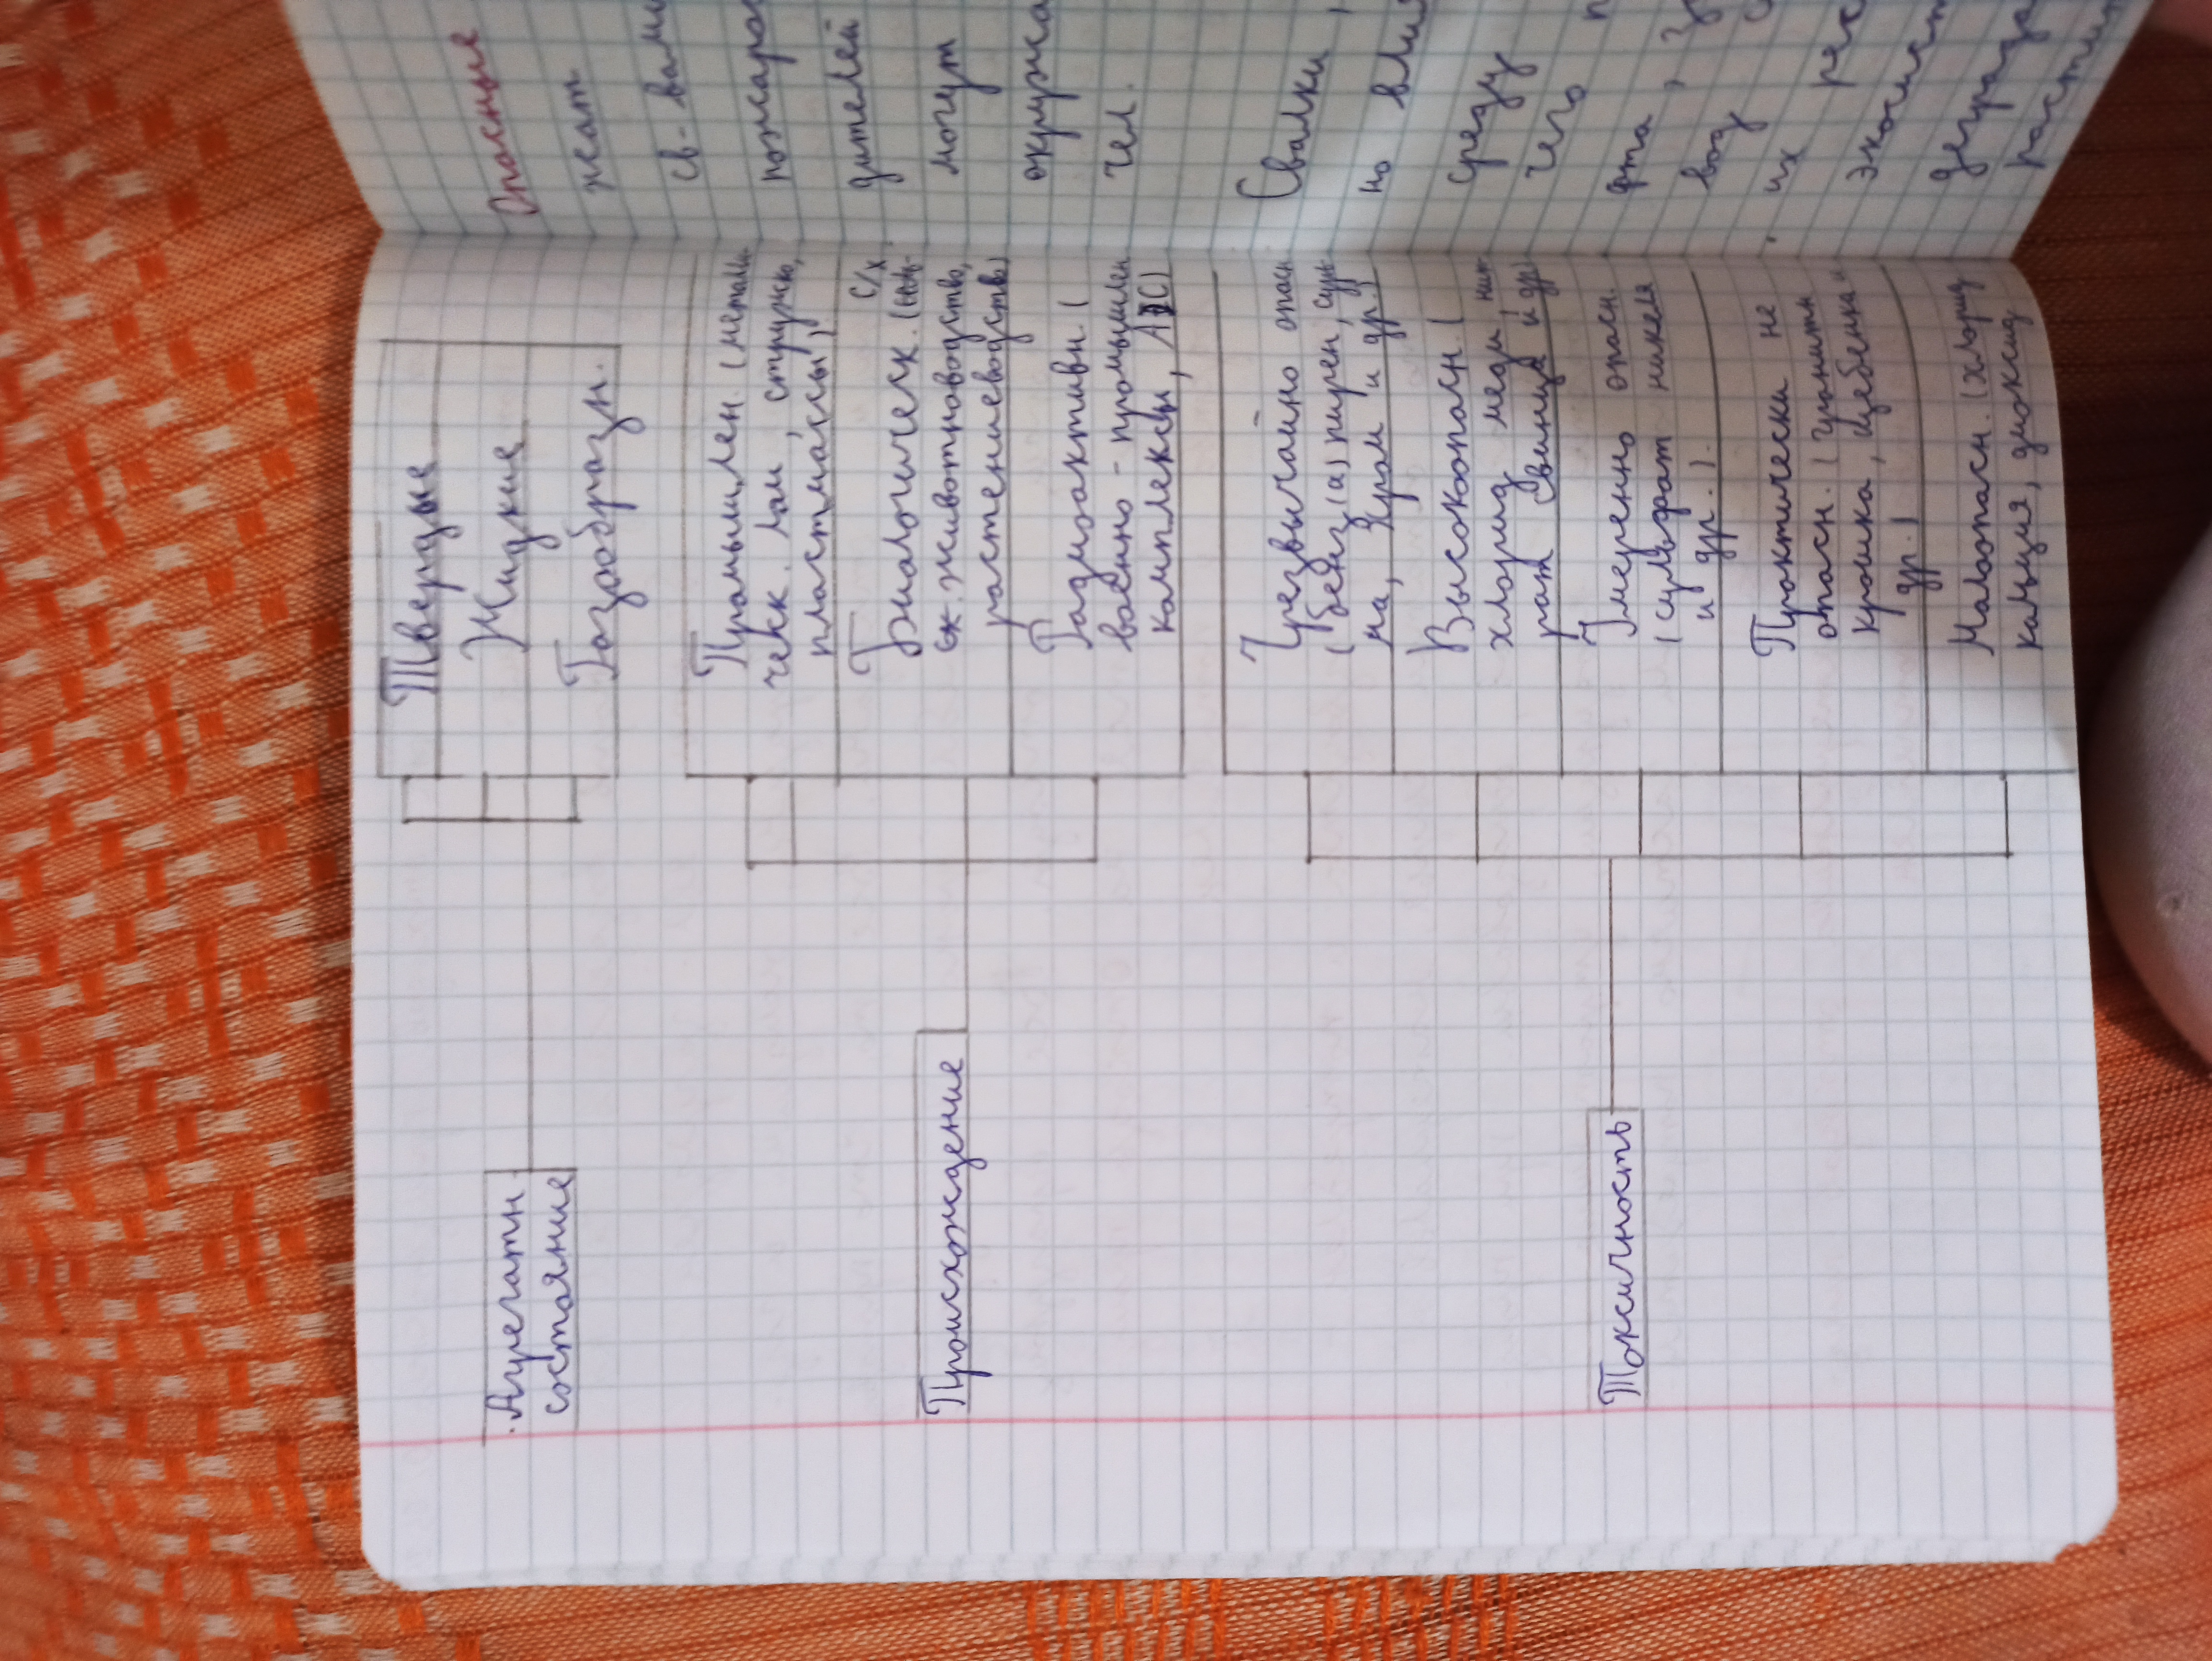 Агрегатн.
состояние
Твердые
Жидкие
Газообразн.
Происхождение
Промышлен. (металли-
чекк. лом, стружка,
пластмассы)
Биологическ. с/х
животноводство,
растениеводство)
Радиоактивн. (
военно-промышлен
комплексы,
Токсичность
Чрезвычайно опасн
(бенз(а)пирен,
ма, хром и др.)
Высокоопасн. (
хлорид меди, нит-
рат свинца и др)
Умеренно опасн.
(сульфат никеля
и др.).
Практически не
опасн. (гранитн
крошка, щебенка и
др.)
Малоопасн. (хлорид
кальция, диоксид
Опасные
жат
св-вами
пожаро
дителей
могут
окружа
чел.
Свалки,
но влия
среду
чего п
фта, з
вод с
их рас
экосист
деграда
растит